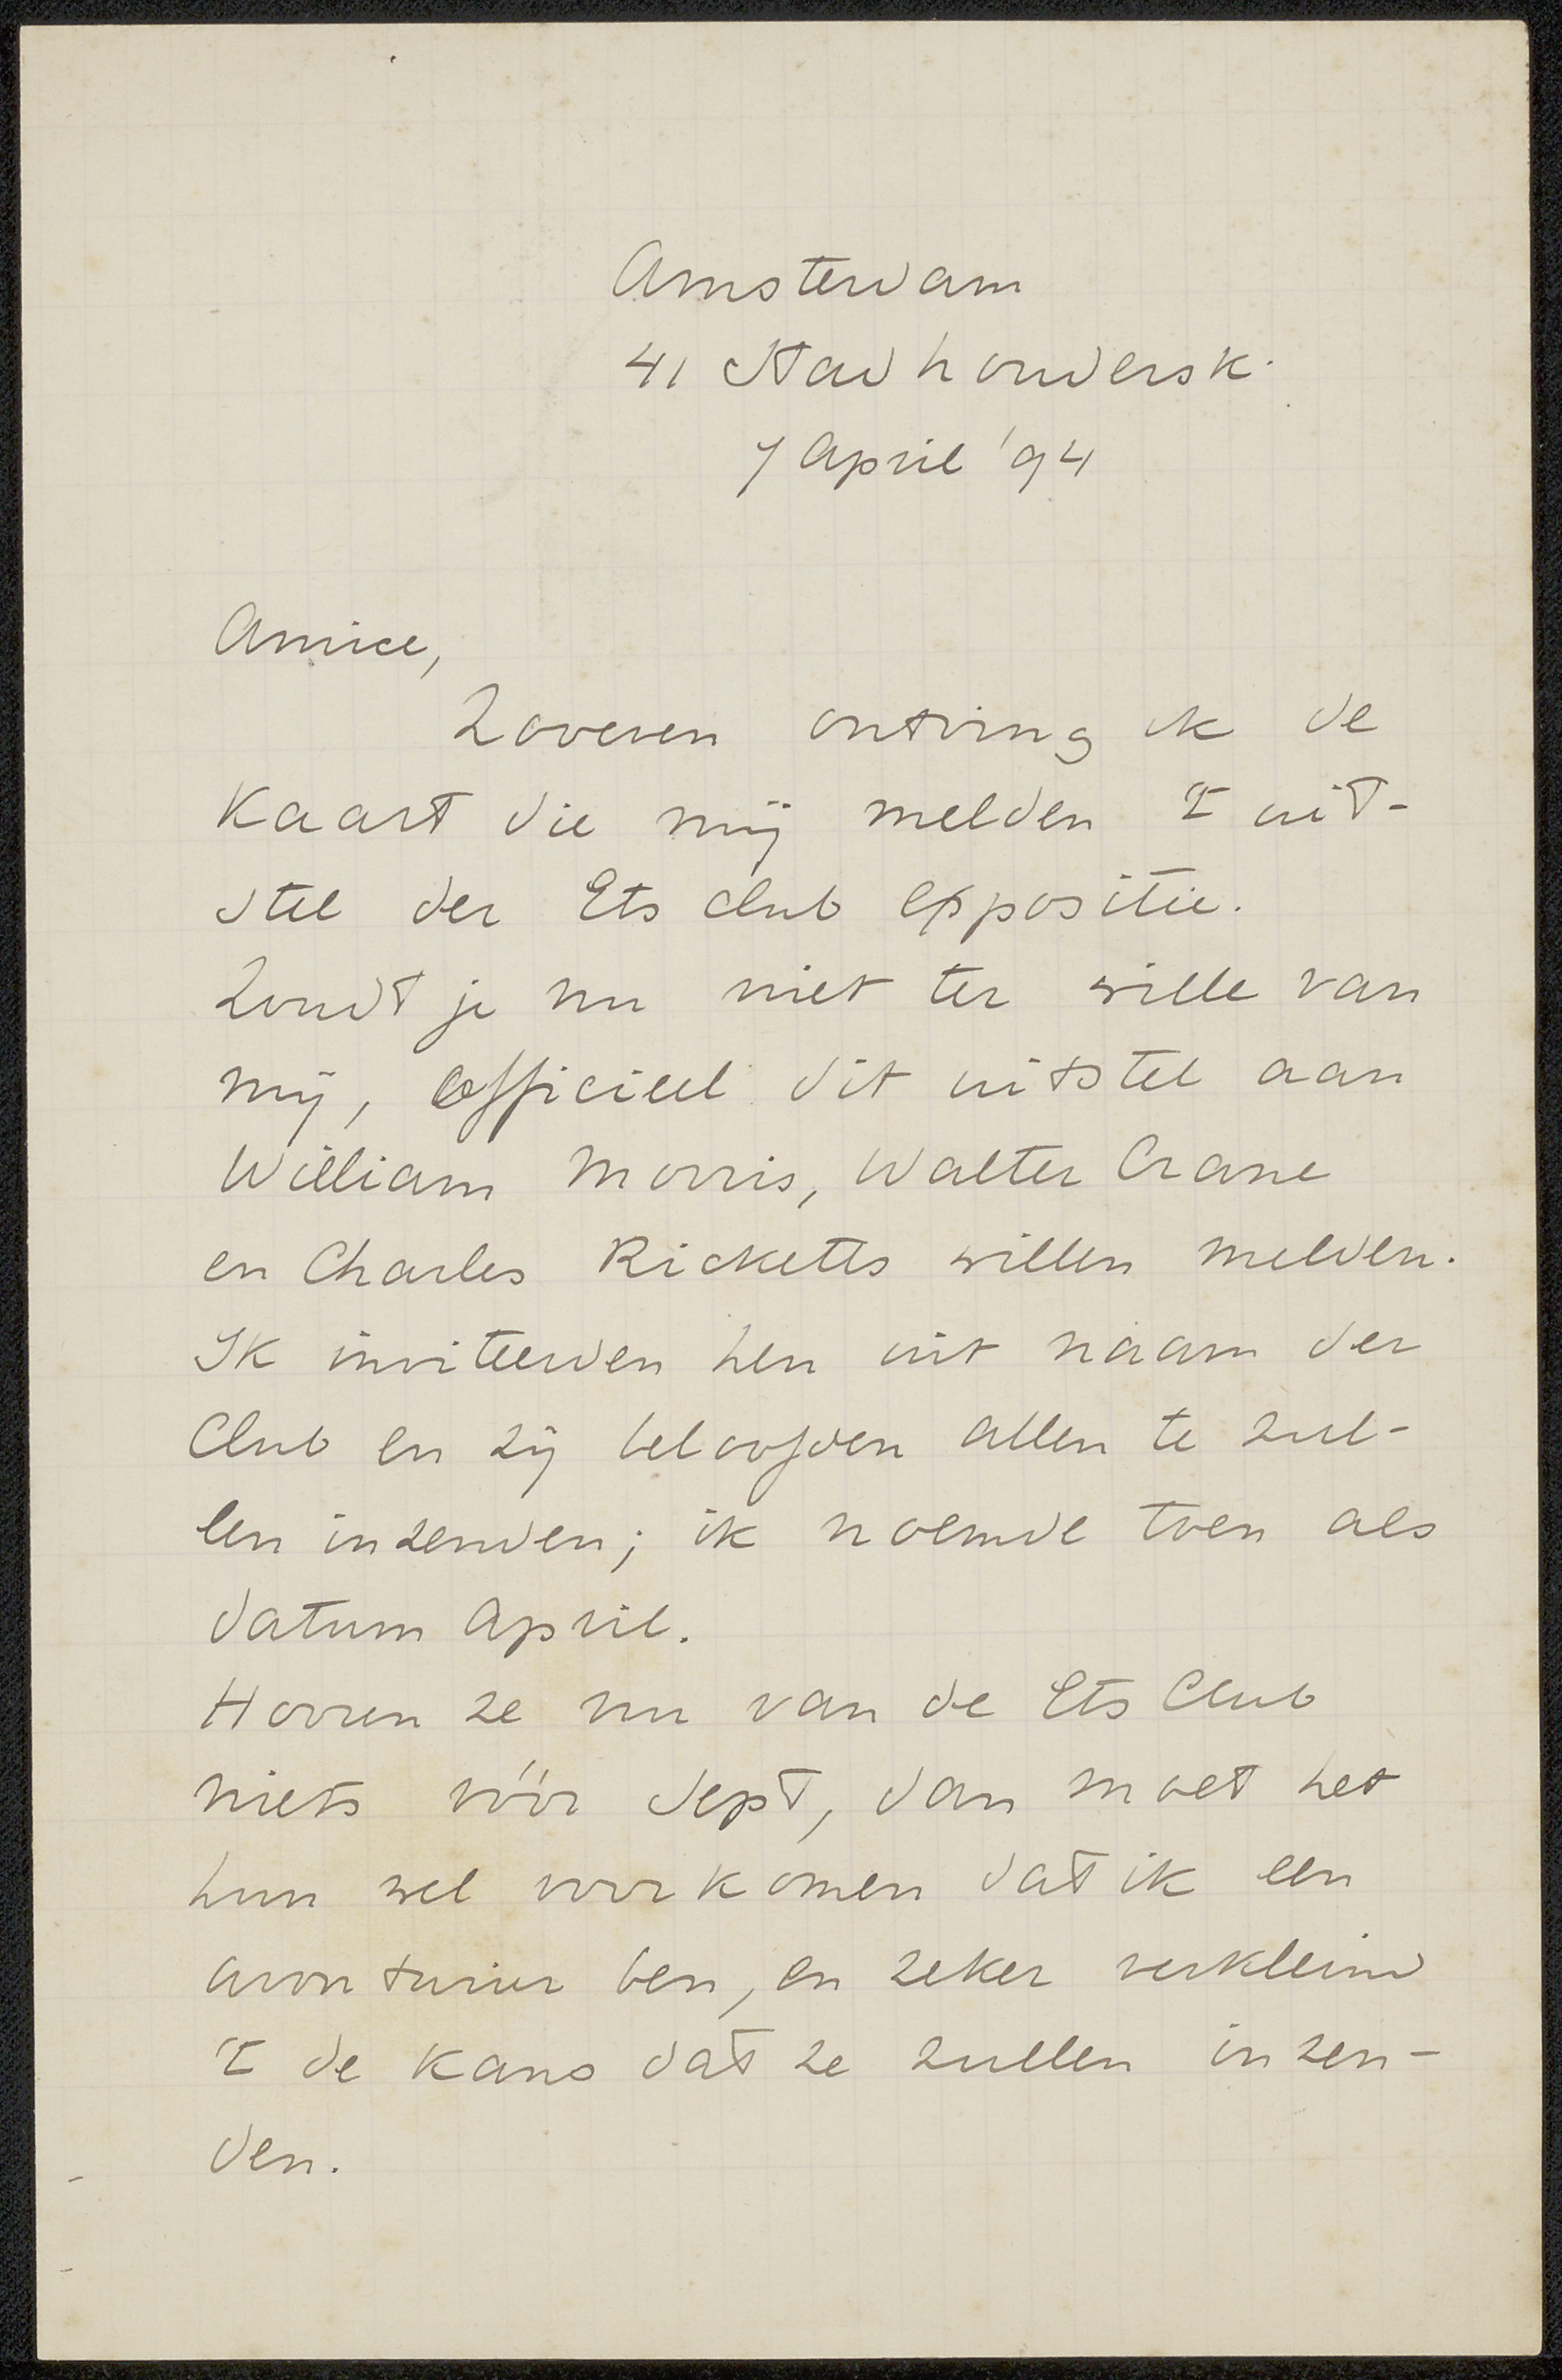 Amsterdam
41 Stadhoudersk.
7 April '94
Amice,
Zoveren ontving ik de
Kaart die mij melden 't uit-
stel der Ets club expositie.
Zoudt je nu niet ter wille van
mij, officieel dit uitstel aan
William Morris, Walter Crane
en Charles Ricketts willen melden.
Ik inviteerden hen uit naam der
Club en zij beloofden allen te zul-
len inzenden; ik noemde toen als
datum April.
Hooren ze nu van de Ets Club
niets vóór Sept, dan moet het
hun wel voorkomen dat ik een
avonturier ben, en zeker verkleind
't de kans dat ze zullen inzen-
den.